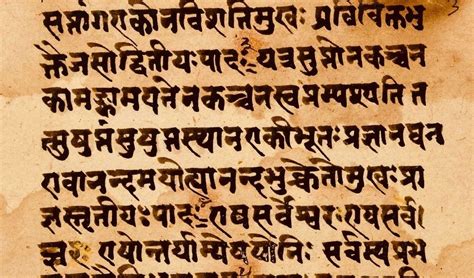 सप्तांगएकोनविंशतिमुखः प्रविविक्तभु
क्तैजसोद्वितीयःपादः यत्रसुप्तोनकञ्चन
कामङ्कामयतेनकञ्चनस्वप्नम्पश्यतित
त्सुषुप्तंसुषुप्तस्थानएकीभूतःप्रज्ञानघन
एवानन्दमयोह्यानन्दभुक्चेतोमुखःप्रा
ज्ञस्तृतीयःपादः एषसर्वेश्वरःएषसर्व
ज्ञः एषोन्तर्याम्येषयोनिः सर्वस्यप्रभ